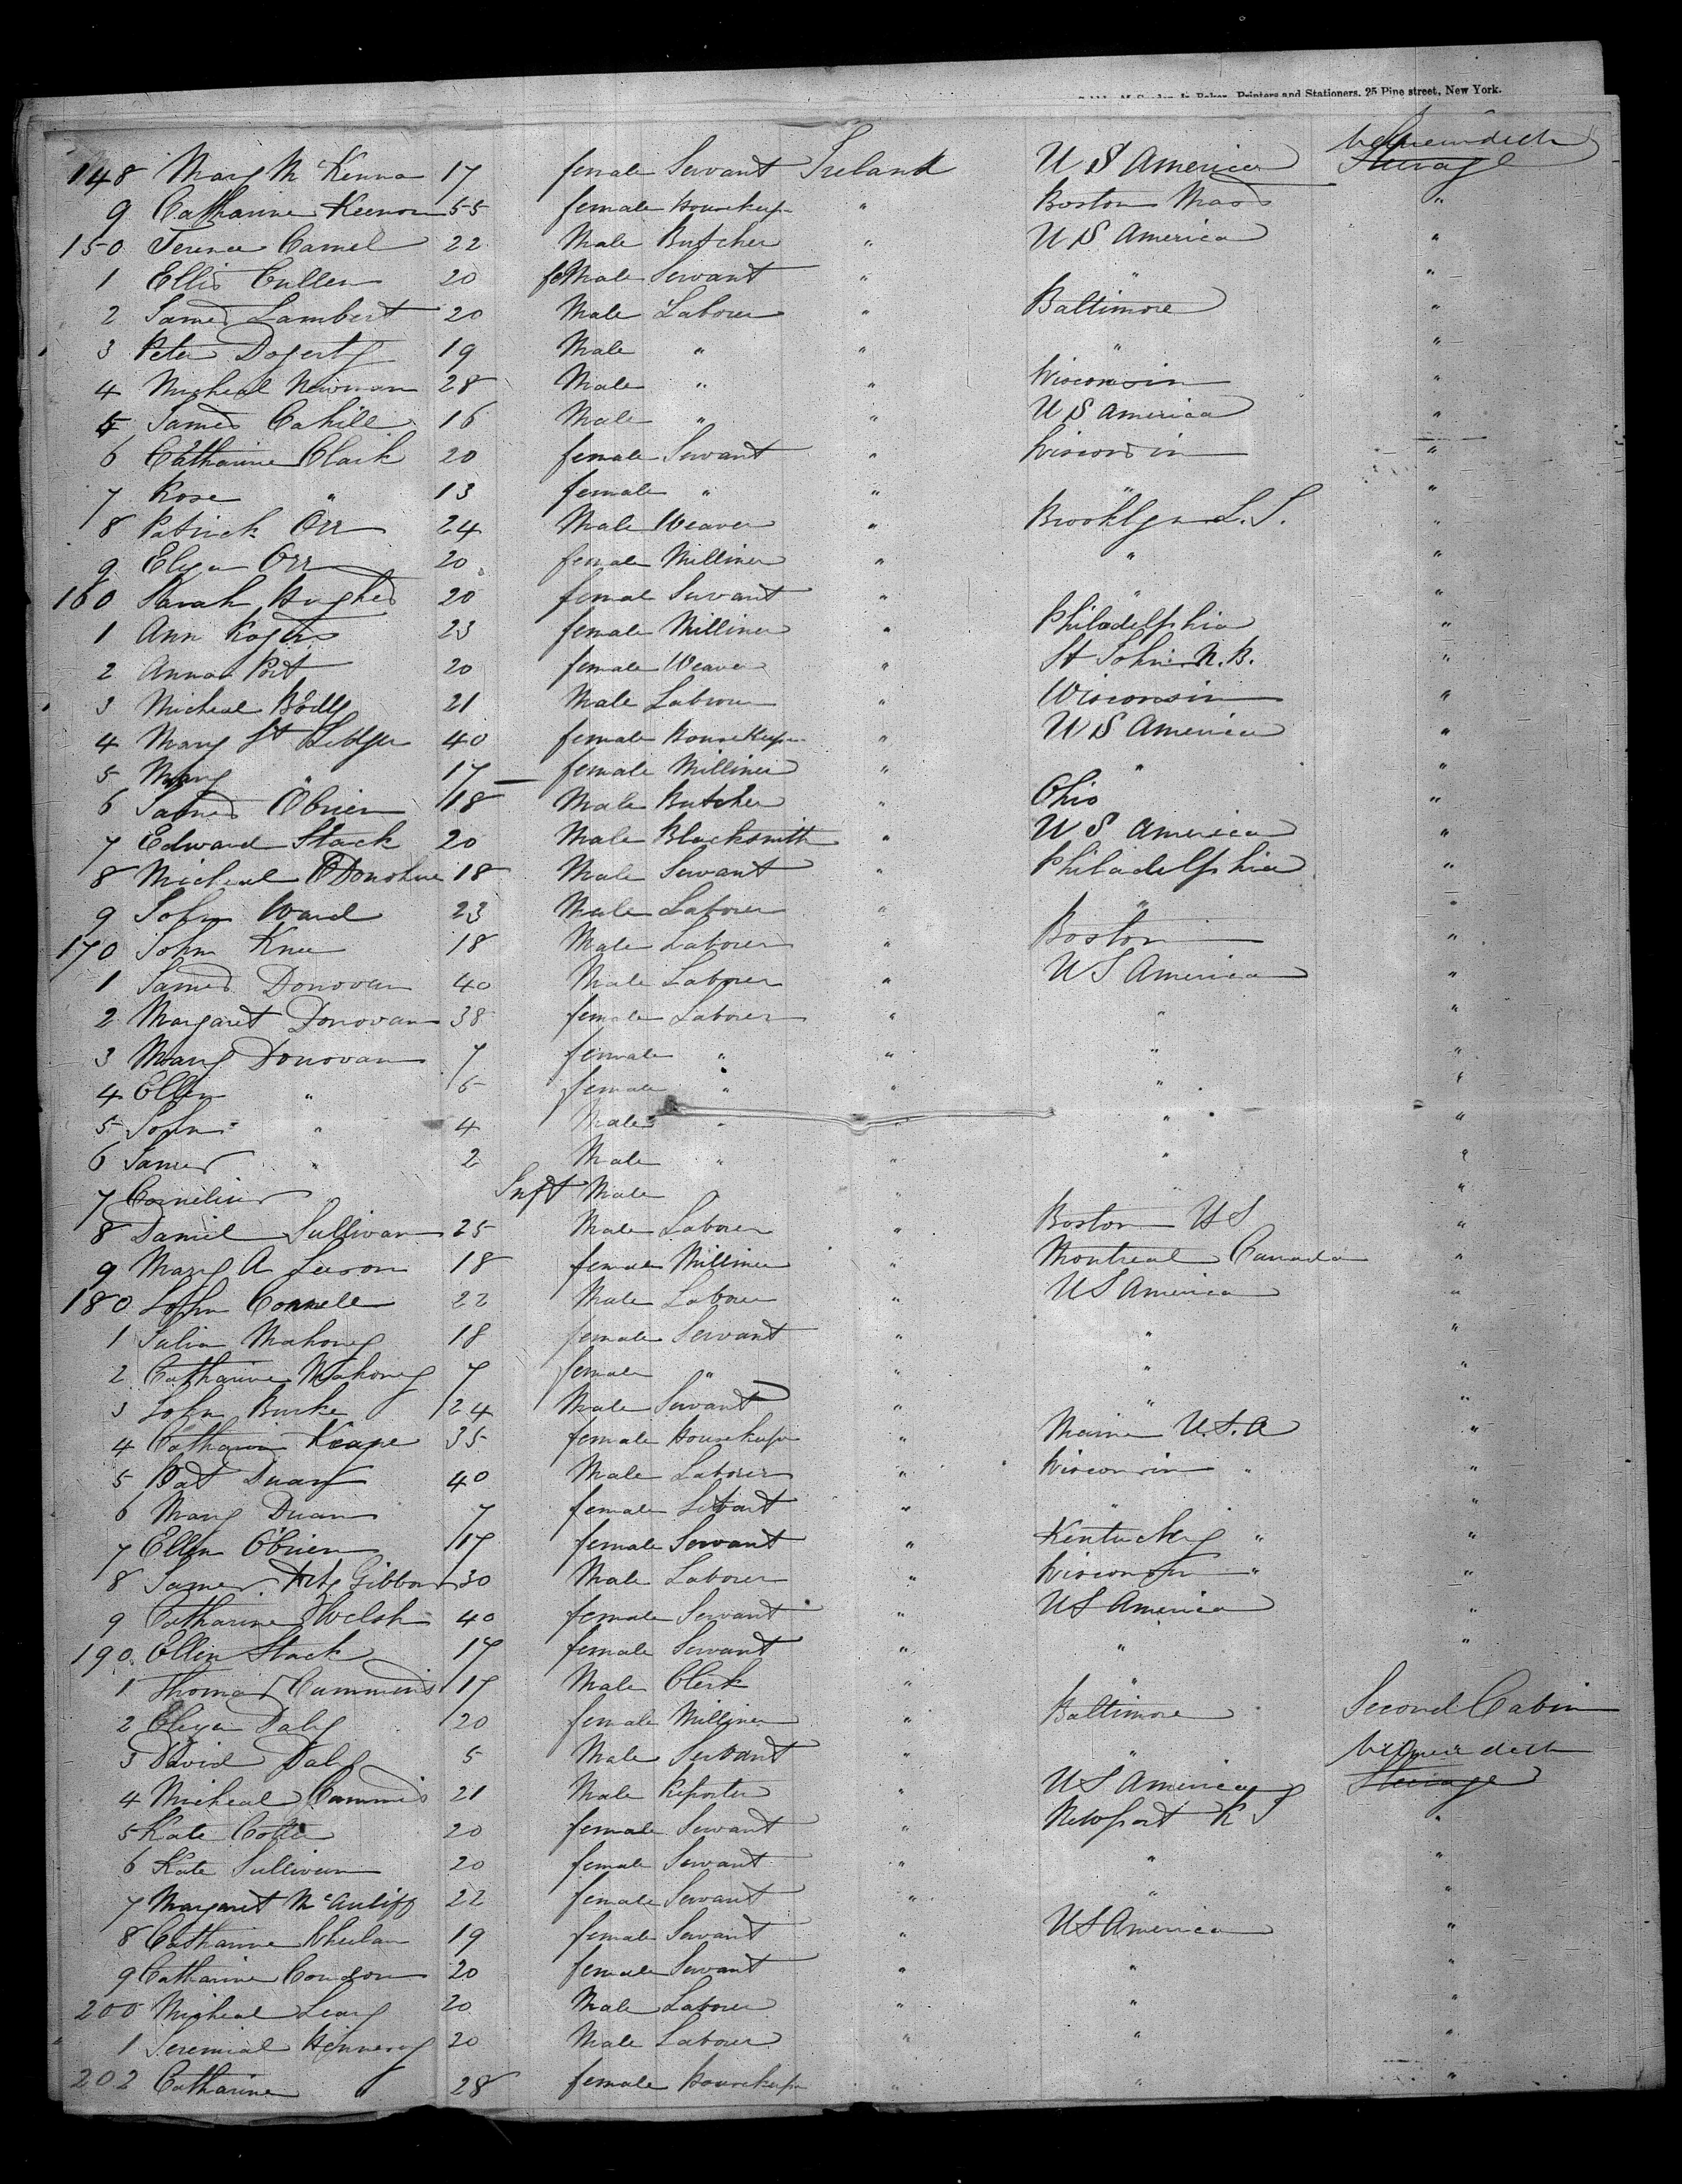 Printers and Stationers, 25 Pine street, New York.
Between decks
148 Mary Mc Kenna 17 female Servant Ireland U S America Steerage
9 Catharine Keenon 55 female Housekeepr " Boston Mass "
150 Terence Camel 22 Male Butcher " U S America "
1 Ellis Cullen 20 feMale Servant " " "
2 James Lambert 20 Male Laborer " Baltimore "
3 Peter Dogerty 19 Male " " " "
4 Micheal Newman 28 Male " " Wisconsin "
5 James Cahill 16 Male " " U S America "
6 Catharine Clark 20 female Servant " Wisconsin "
7 Rose " 13 female " " " "
8 Patrick Orr 24 Male Weaver " Brooklyn L. I. "
9 Eliza Orr 20 female Milliner " " "
160 Sarah Hughes 20 female Servant " " "
1 Ann Rogers 23 female Milliner " Philadelphia "
2 Anna Port 20 female Weaver " St John N. B. "
3 Micheal 21 Male Laborer " Wisconsin "
4 Mary St 40 female Housekeepr " U S America "
5 Mary " 17 female Milliner " " "
6 James OBrien 18 Male Butcher " Ohio "
7 Edward Stack 20 Male Blacksmith " U S America "
8 Micheal ODonohue 18 Male Servant " Philadelphia "
9 John Ward 23 Male Laborer " " "
170 John Knee 18 Male Laborer " Boston "
1 James Donovan 40 Male Laborer " U S America "
2 Margaret Donovan 38 female Laborer " " "
3 Mary Donovan 7 female " " " "
4 Ellen " 6 female " " " "
5 John " 4 Male " " " "
6 James " 2 Male " " " "
7 Cornelius Inft Male " " " "
8 Daniel Sullivan 25 Male Laborer " Boston US "
9 Mary A Leeson 18 female Milliner " Montreal Canada "
180 John Connell 22 Male Laborer " US America "
1 Julia Mahony 18 female Servant " " "
2 Catharine Mahony 7 female " " " "
3 John Burke 24 Male Servant " " "
4 Catharine Keape 35 female Housekeepr " Maine U.S.A "
5 Pat Duany 40 Male Laborer " Wisconsin " "
6 Mary Duan 7 female Servant " " "
7 Ellen O'Brien 17 female Servant " Kentucky " "
8 James Fitz Gibbon 30 Male Laborer " Wisconsin " "
9 Catharine Welsh 40 female Servant " US America "
190 Ellen Stack 17 female Servant " " "
1 Thomas Cummins 17 Male Clerk " "
2 Eliza Daly 20 female Milliner " Baltimore Second Cabin
3 David Daly 5 Male Servant " " Between decks
4 Micheal Cummins 21 Male Reporter " US America Steerage
5 Kate Cotter 20 female Servant " Newport R I "
6 Kate Sullivan 20 female Servant " " "
7 Margaret McAuliff 22 female Servant " " "
8 Catharine Whelan 19 female Servant " US America "
9 Catharine Condon 20 female Servant " " "
200 Micheal Leary 20 Male Laborer " " "
1 Jeremiah Hennesy 20 Male Laborer " " "
202 Catharine 28 female Housekeepr " " "